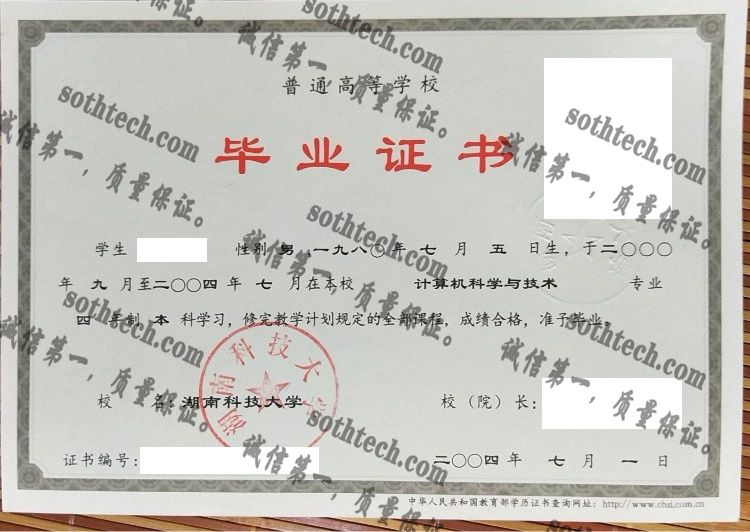 普通高等学校
毕业证书
学生 性别 男 ,一九八〇年 七 月 五 日生，于二〇〇〇
年 九 月至二〇〇四 年 七 月在本校 计算机科学与技术 专业
四 年制 本 科学习，修完教学计划规定的全部课程，成绩合格，准予毕业。
校 名：湖南科技大学 校（院）长：
湖南科技大学
证书编号： 二〇〇四年 七 月 一 日
中华人民共和国教育部学历证书查询网址：http://www.chsi.com.cn
sothtech.com
诚信第一，质量保证。
sothtech.com
诚信第一，质量保证。
sothtech.com
诚信第一，质量保证。
sothtech.com
诚信第一，质量保证。
sothtech.com
诚信第一，质量保证。
sothtech.com
诚信第一，质量保证。
sothtech.com
诚信第一，质量保证。